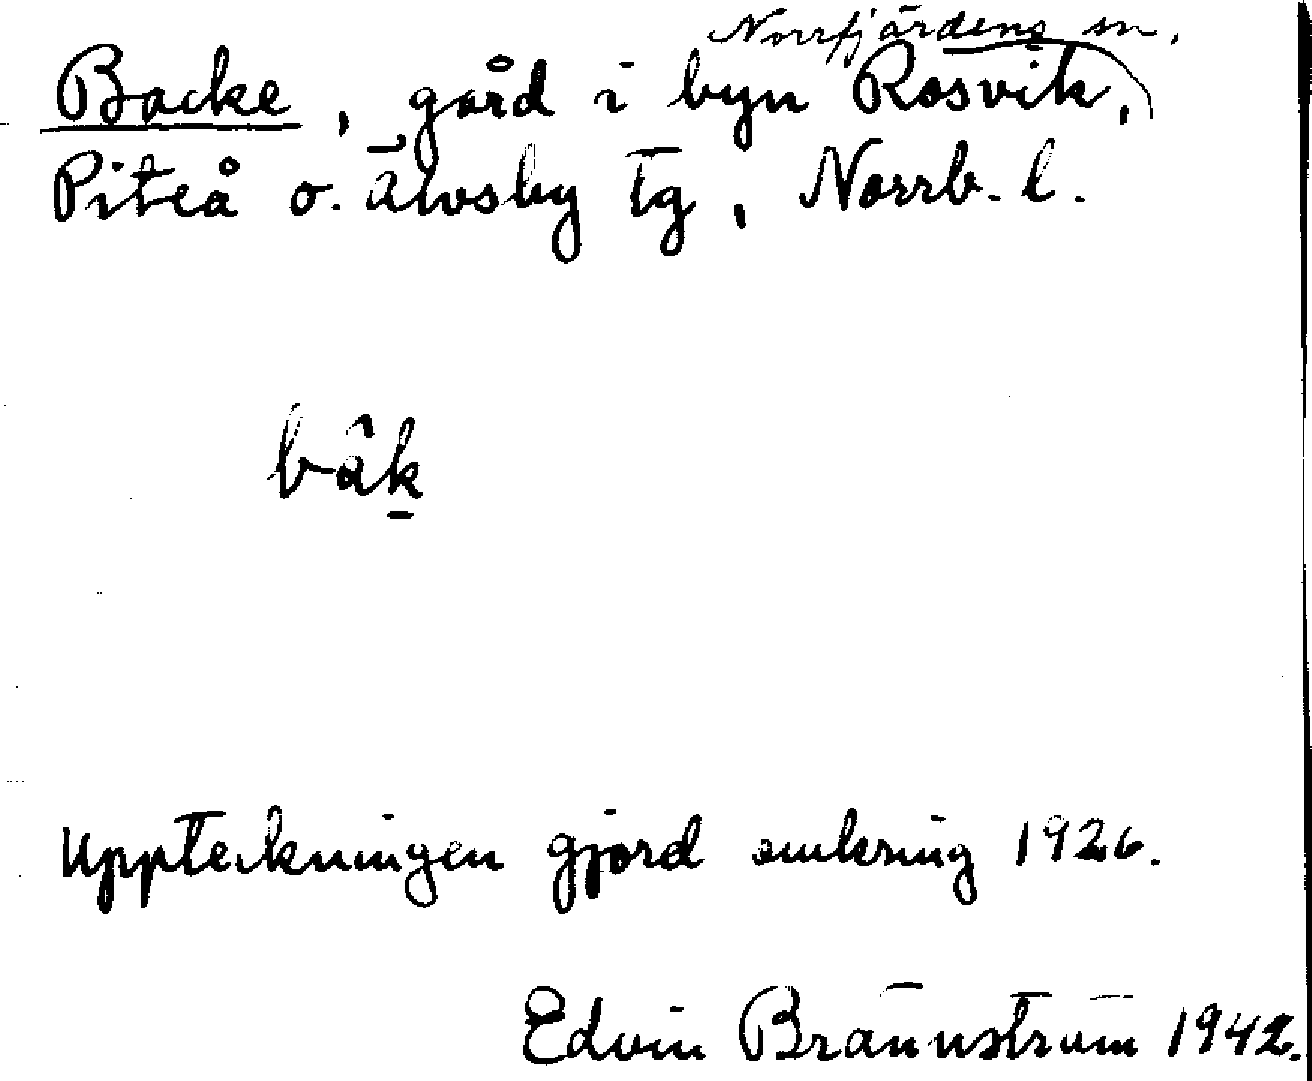 Norrfjärdens sn.
Backe, gård i byn Rosvik,
Piteå o. Älvsby tg, Norrb. l.
bâk̲
Uppteckningen gjord omkring 1926.
Edvin Brännström 1942.